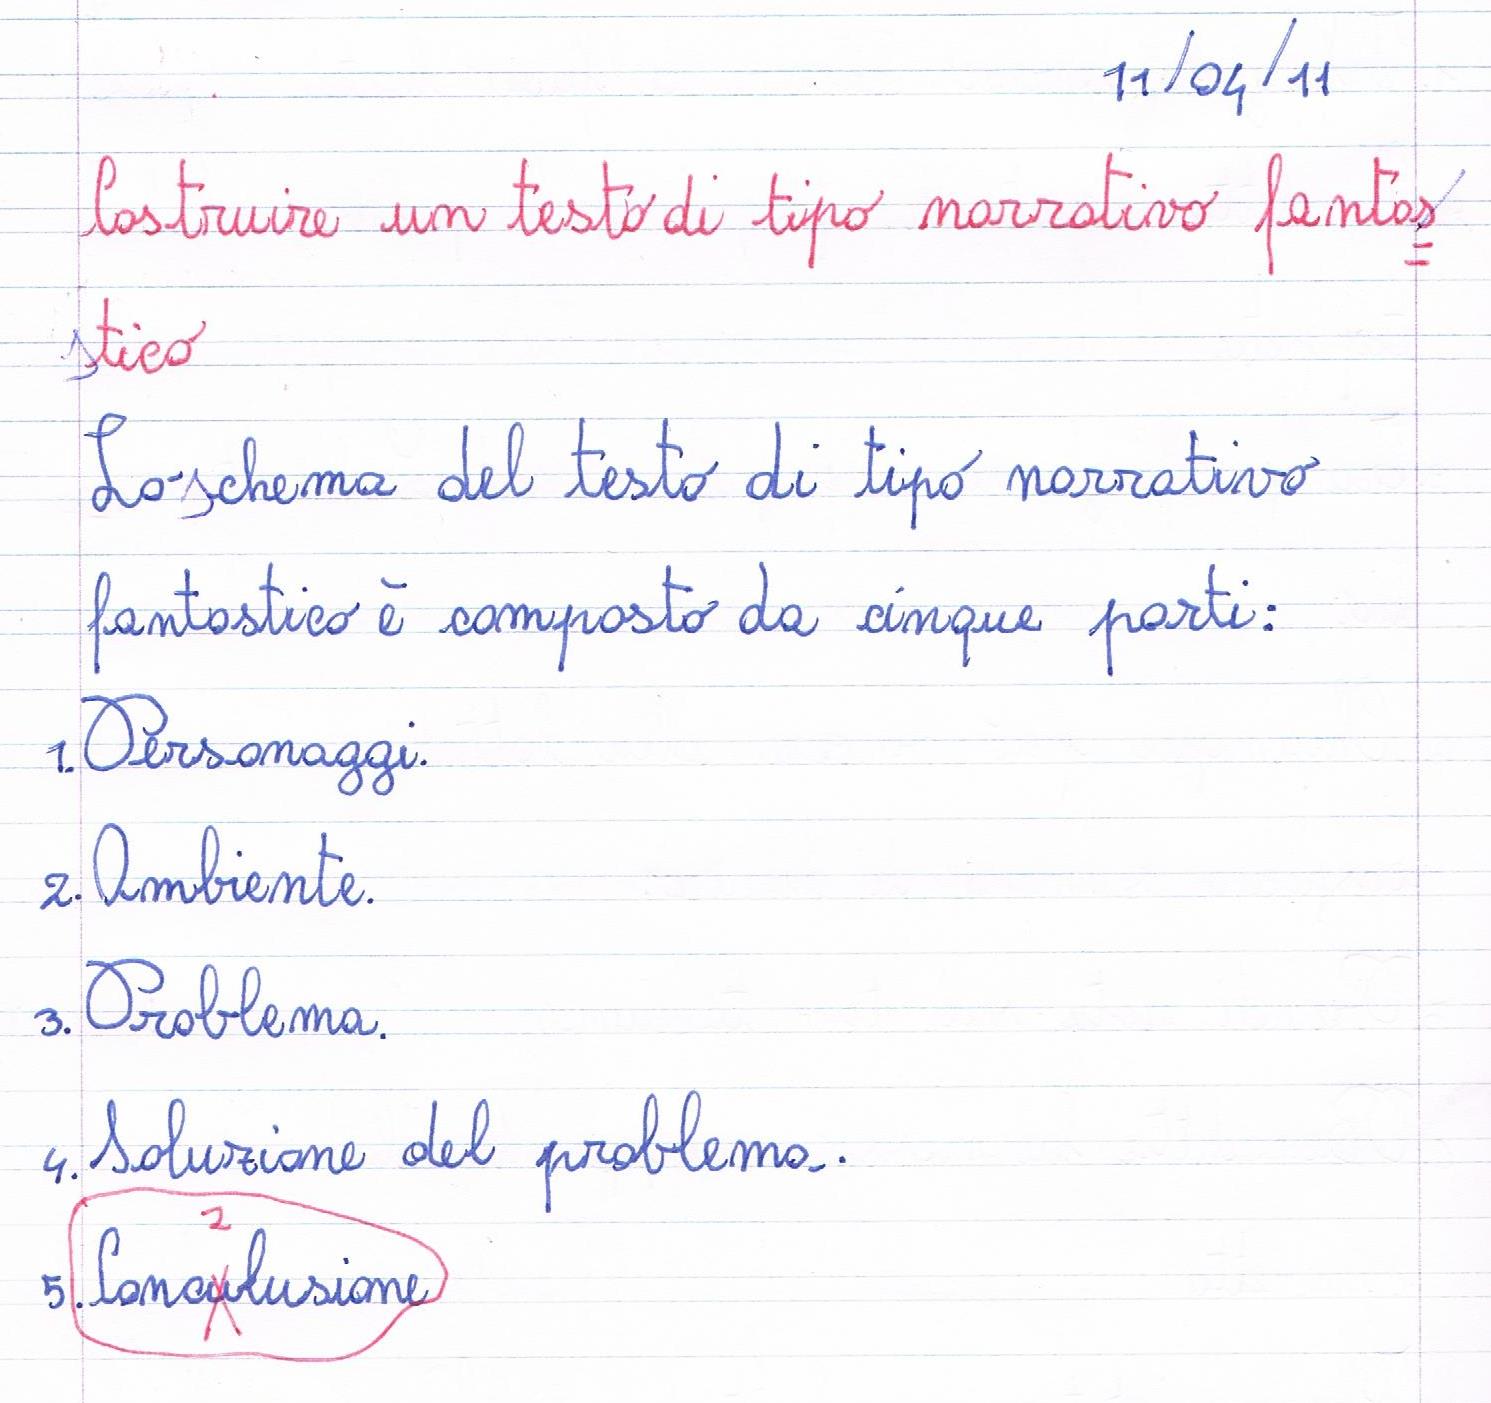 11/04/11
Costruire un testo di tipo narrativo fantas
stico
Lo schema del testo di tipo narrativo
fantastico è composto da cinque parti:
1. Personaggi.
2. Ambiente.
3. Problema.
4. Soluzione del problema.
2
5. Conculusione